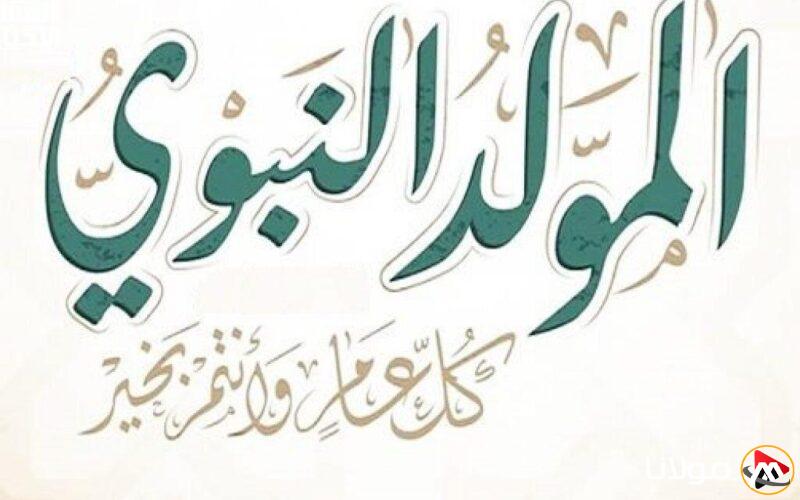 المولد النبوي
كل عام وأنتم بخير
مولانا